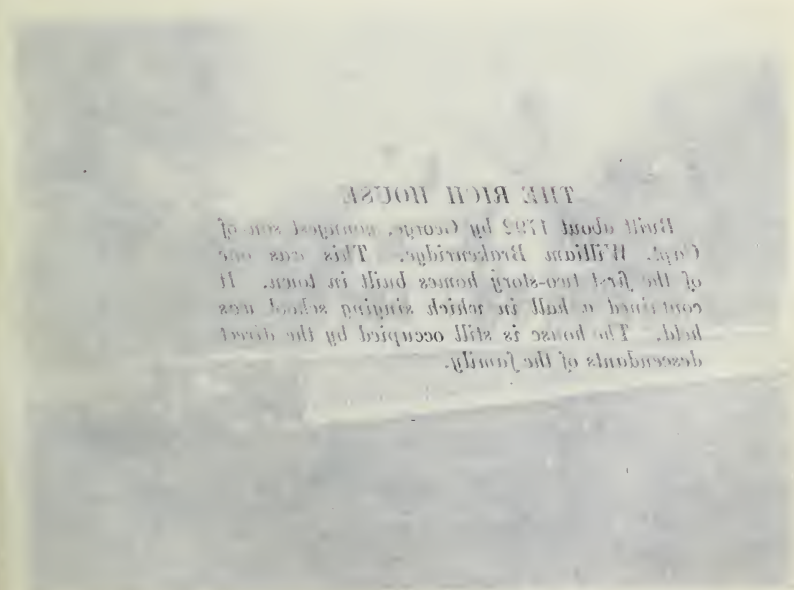 THE RICH HOUSE
Built about 1792 by George, youngest son of
Capt. William Brakenridge. This was one
of the first two-story homes built in town. It
contained a hall in which singing school was
held. The house is still occupied by the direct
descendants of the family.